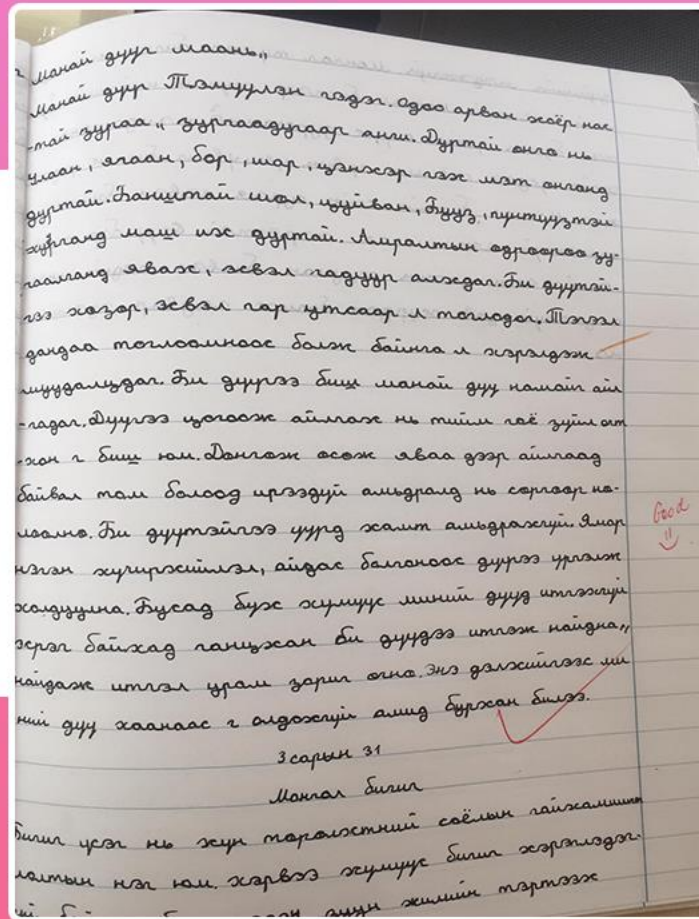 манай дууг маань„
манай дүүг Тэмүүлэн гэдэг. Одоо арван хоёр нас
-тай зураа„ зургаадугаар анги. Дуртай өнгө нь
улаан, ягаан, бор, шар, цэнхэр гэх мэт өнгөнд
дуртай. Банштай шөл, цуйван, Бууз, пүнтүүзтэй
хуурганд маш их дуртай. Амралтын өдрөөрөө зу-
гаалганд явах, эсвэл гадуур алхдаг. Би дүүтэй-
гээ хөзөр, эсвэл гар утсаар л тоглодог. Тэгээл
дандаа тоглоомноос болж байнга л хэрэлдэж
муудалцдаг. Би дүүгээ биш манай дүү намайг айл
-гадаг. Дүүгээ цохиож айлгах нь тийм гоё зүйл огт
-хон г биш юм. Дөнгөж өсөж яваа дээр айлгаад
байвал том болоод ирээдүй амьдралд нь сөргөөр нө-
лөөлнө. Би дүүтэйгээ уурд хамт амьдрахгүй. Ямар
нэгэн хүчирхийлэл, айдас болгоноос дүүгээ үргэлж
холдуулна. Бусад бүх хүмүүс миний дүүд итгэхгүй
эсрэг байхад ганцхан би дүүдээ итгэж найдна„
найдаж итгэл урам зориг өгнө. Энэ дэлхийгээс ми
ний дүү хаанаас г олдохгүй амид бурхан билээ.
Good
3 сарын 31
Монгол бичиг
Бичиг үсэг нь хүн төрөлхтний соёлын гайхамшигт
нэг юм. хэрвээ хүмүүс бичиг хэрэглэдэг-
жилийн тэртээх